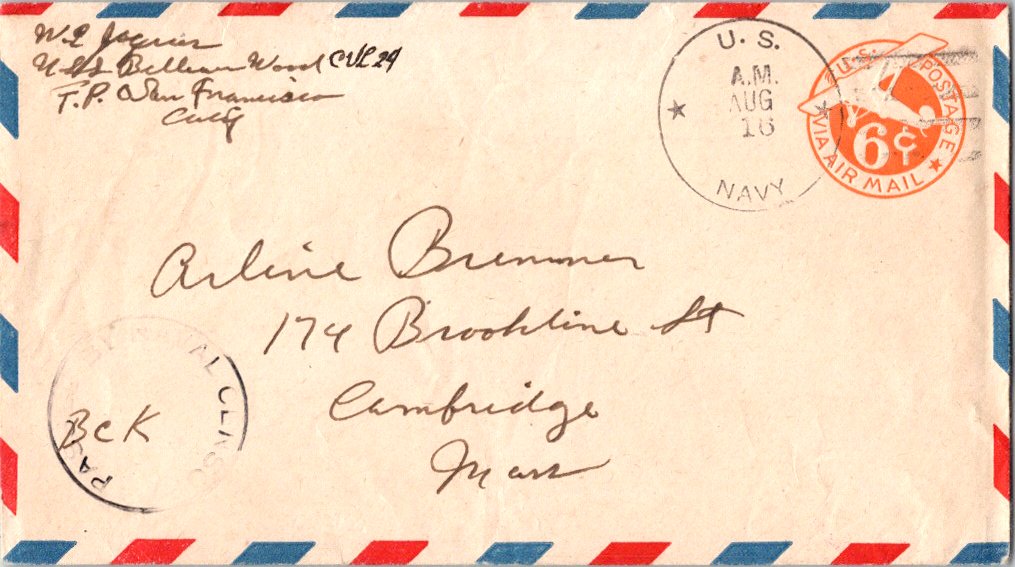 W. L.
U.S.S. Belleau Wood CVL 24
F.P. O San Francisco
Calif
U. S.
A.M.
AUG
16
NAVY
U.S. POSTAGE
6¢
VIA AIR MAIL
Arline Bremner
174 Brookline St
Cambridge
Mass
PASSED BY NAVAL CENSOR
BCK